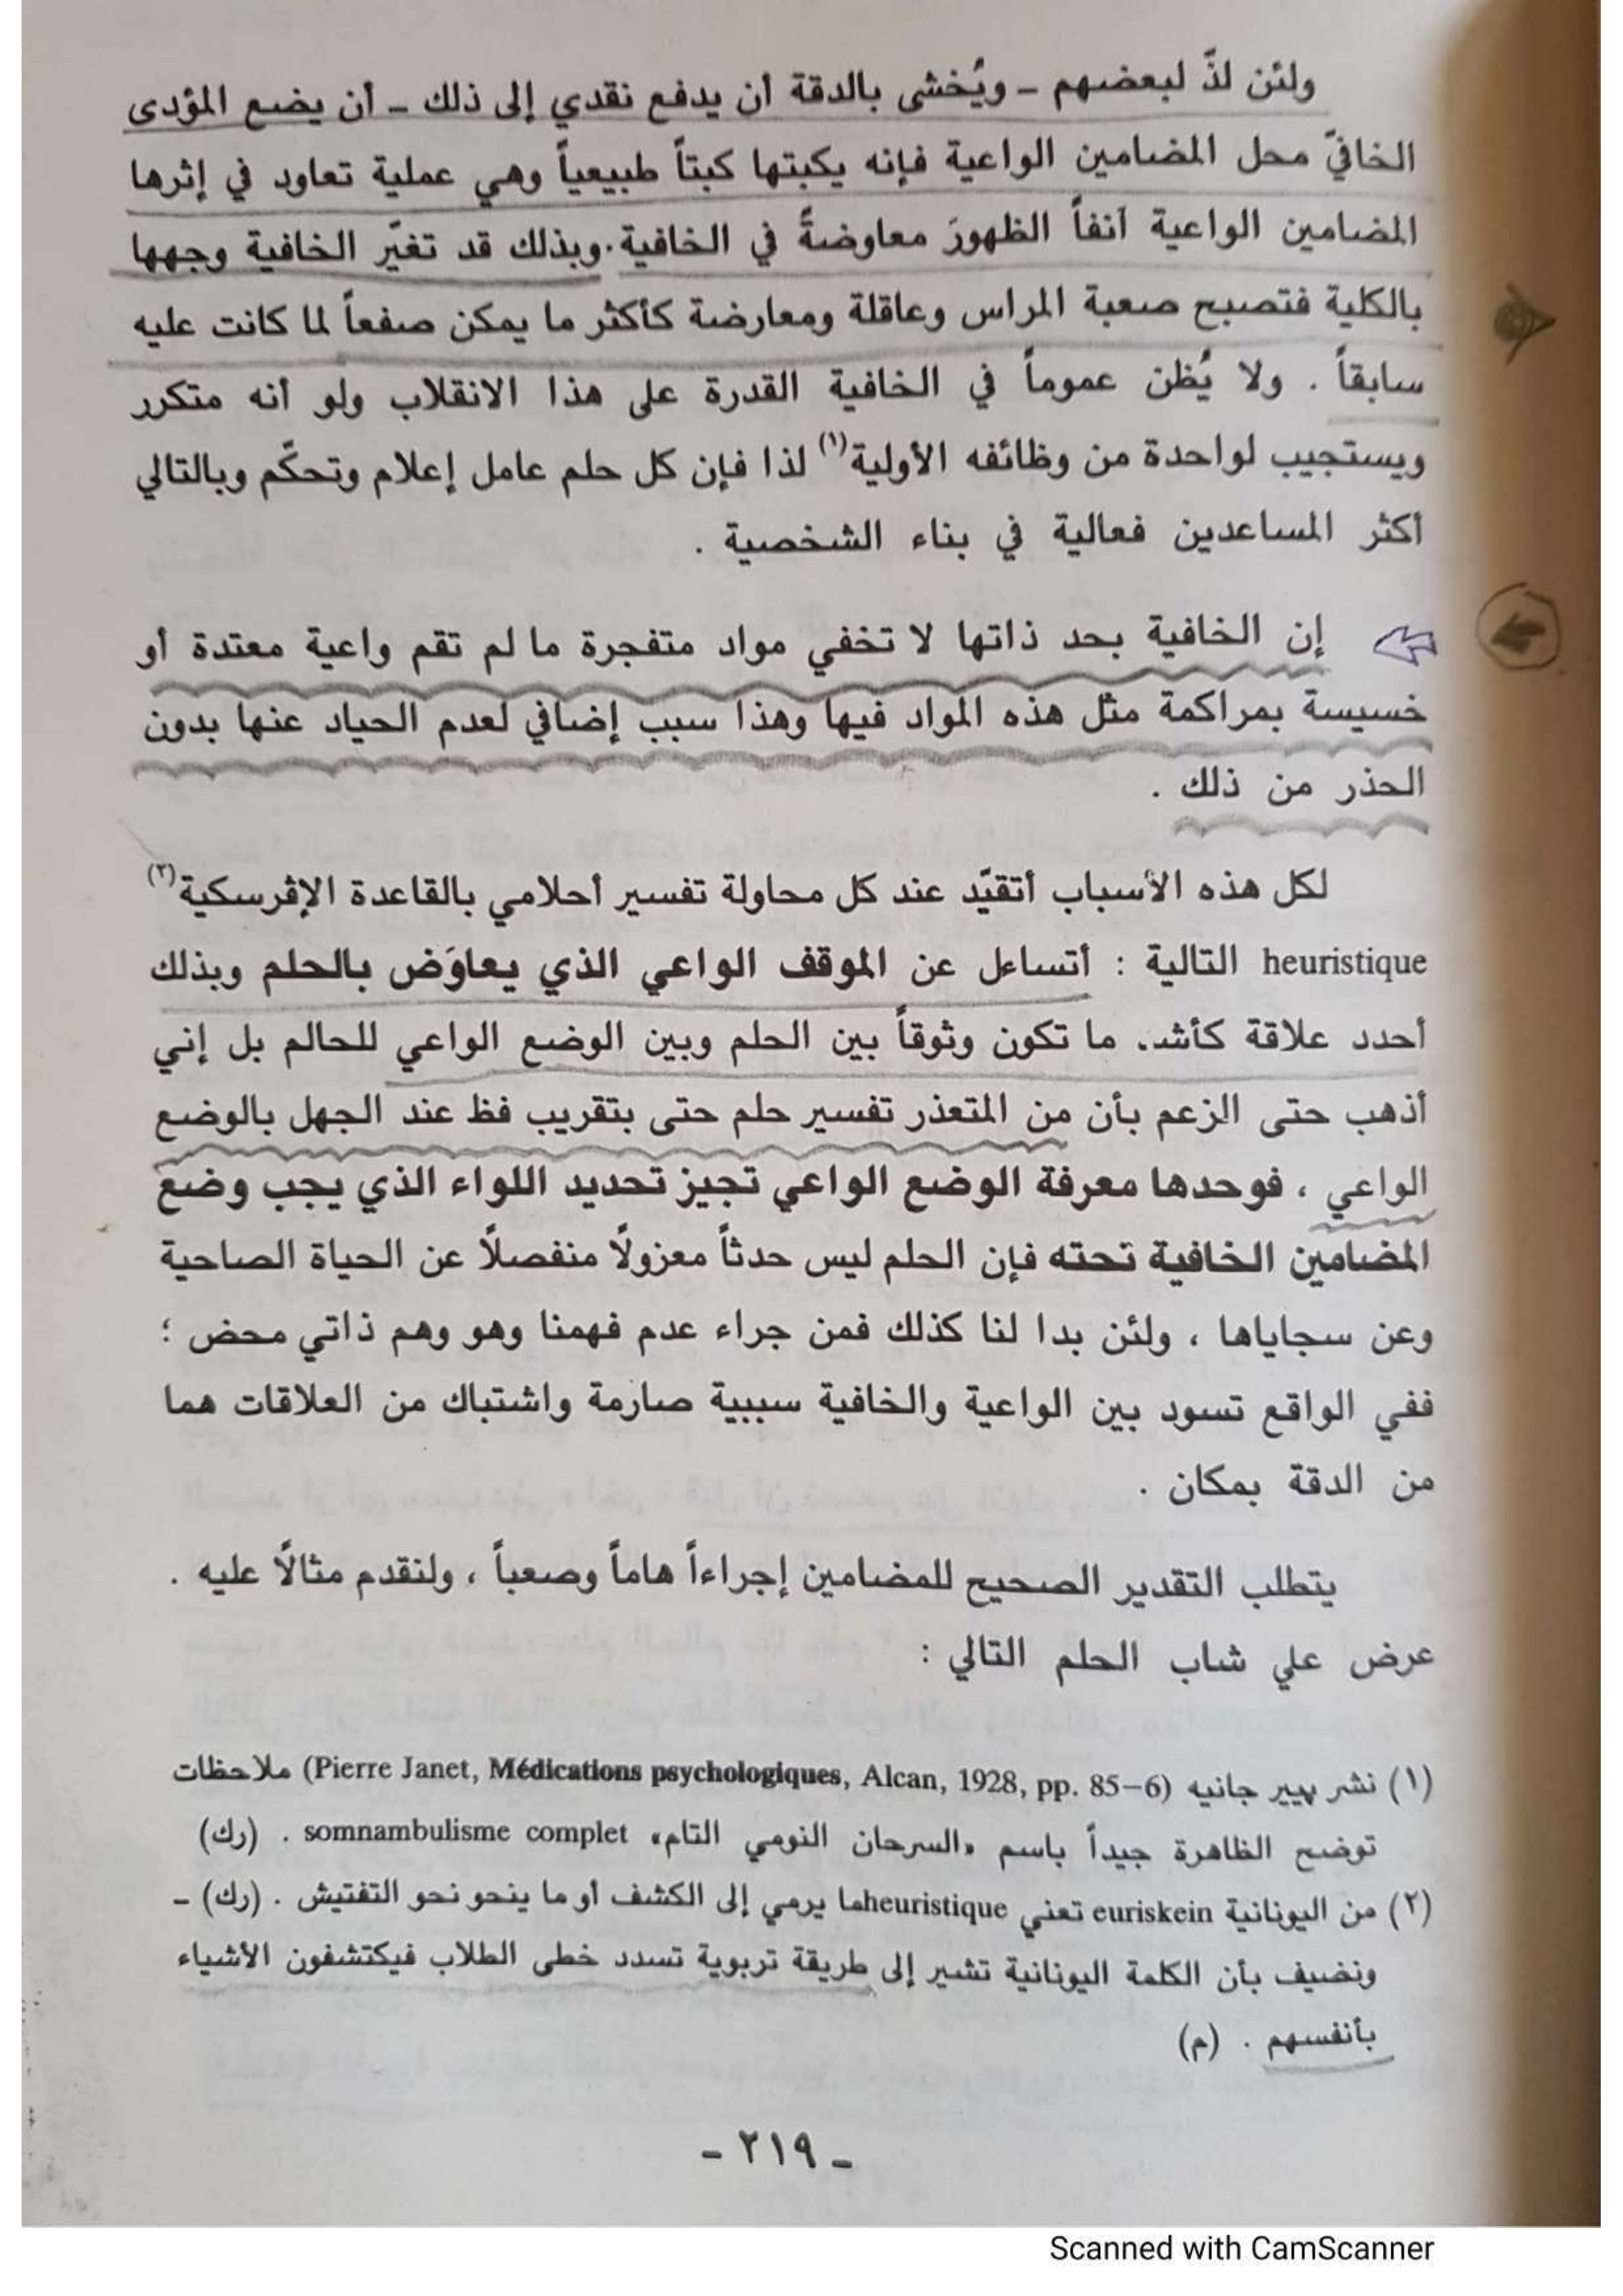 ولئن لذّ لبعضهم ـ ويُخشى بالدقة أن يدفع نقدي إلى ذلك ـ أن يضع المؤدى
الخافيّ محل المضامين الواعية فإنه يكبتها كبتاً طبيعياً وهي عملية تعاود في إثرها
المضامين الواعية آنفاً الظهورَ معاوضةً في الخافية. وبذلك قد تغيّر الخافية وجهها
بالكلية فتصبح صعبة المراس وعاقلة ومعارضة كأكثر ما يمكن صفعاً لما كانت عليه
سابقاً . ولا يُظن عموماً في الخافية القدرة على هذا الانقلاب ولو أنه متكرر
ويستجيب لواحدة من وظائفه الأولية(١) لذا فإن كل حلم عامل إعلام وتحكّم وبالتالي
أكثر المساعدين فعالية في بناء الشخصية .
إن الخافية بحد ذاتها لا تخفي مواد متفجرة ما لم تقم واعية معتدة أو
خسيسة بمراكمة مثل هذه المواد فيها وهذا سبب إضافي لعدم الحياد عنها بدون
الحذر من ذلك .
لكل هذه الأسباب أتقيّد عند كل محاولة تفسير أحلامي بالقاعدة الإڤرسكية(٢)
heuristique التالية : أتساءل عن الموقف الواعي الذي يعاوَض بالحلم وبذلك
أحدد علاقة كأشد ما تكون وثوقاً بين الحلم وبين الوضع الواعي للحالم بل إني
أذهب حتى الزعم بأن من المتعذر تفسير حلم حتى بتقريب فظ عند الجهل بالوضع
الواعي ، فوحدها معرفة الوضع الواعي تجيز تحديد اللواء الذي يجب وضع
المضامين الخافية تحته فإن الحلم ليس حدثاً معزولًا منفصلًا عن الحياة الصاحية
وعن سجاياها ، ولئن بدا لنا كذلك فمن جراء عدم فهمنا وهو وهم ذاتي محض ؛
ففي الواقع تسود بين الواعية والخافية سببية صارمة واشتباك من العلاقات هما
من الدقة بمكان .
يتطلب التقدير الصحيح للمضامين إجراءاً هاماً وصعباً ، ولنقدم مثالًا عليه .
عرض علي شاب الحلم التالي :
(١) نشر بيير جانيه (Pierre Janet, Médications psychologiques, Alcan, 1928, pp. 85–6) ملاحظات
توضح الظاهرة جيداً باسم «السرحان النومي التام» somnambulisme complet . (رك)
(٢) من اليونانية euriskein تعني heuristiqueما يرمي إلى الكشف أو ما ينحو نحو التفتيش . (رك) ـ
ونضيف بأن الكلمة اليونانية تشير إلى طريقة تربوية تسدد خطى الطلاب فيكتشفون الأشياء
بأنفسهم . (م)
ـ ٢١٩ ـ
Scanned with CamScanner